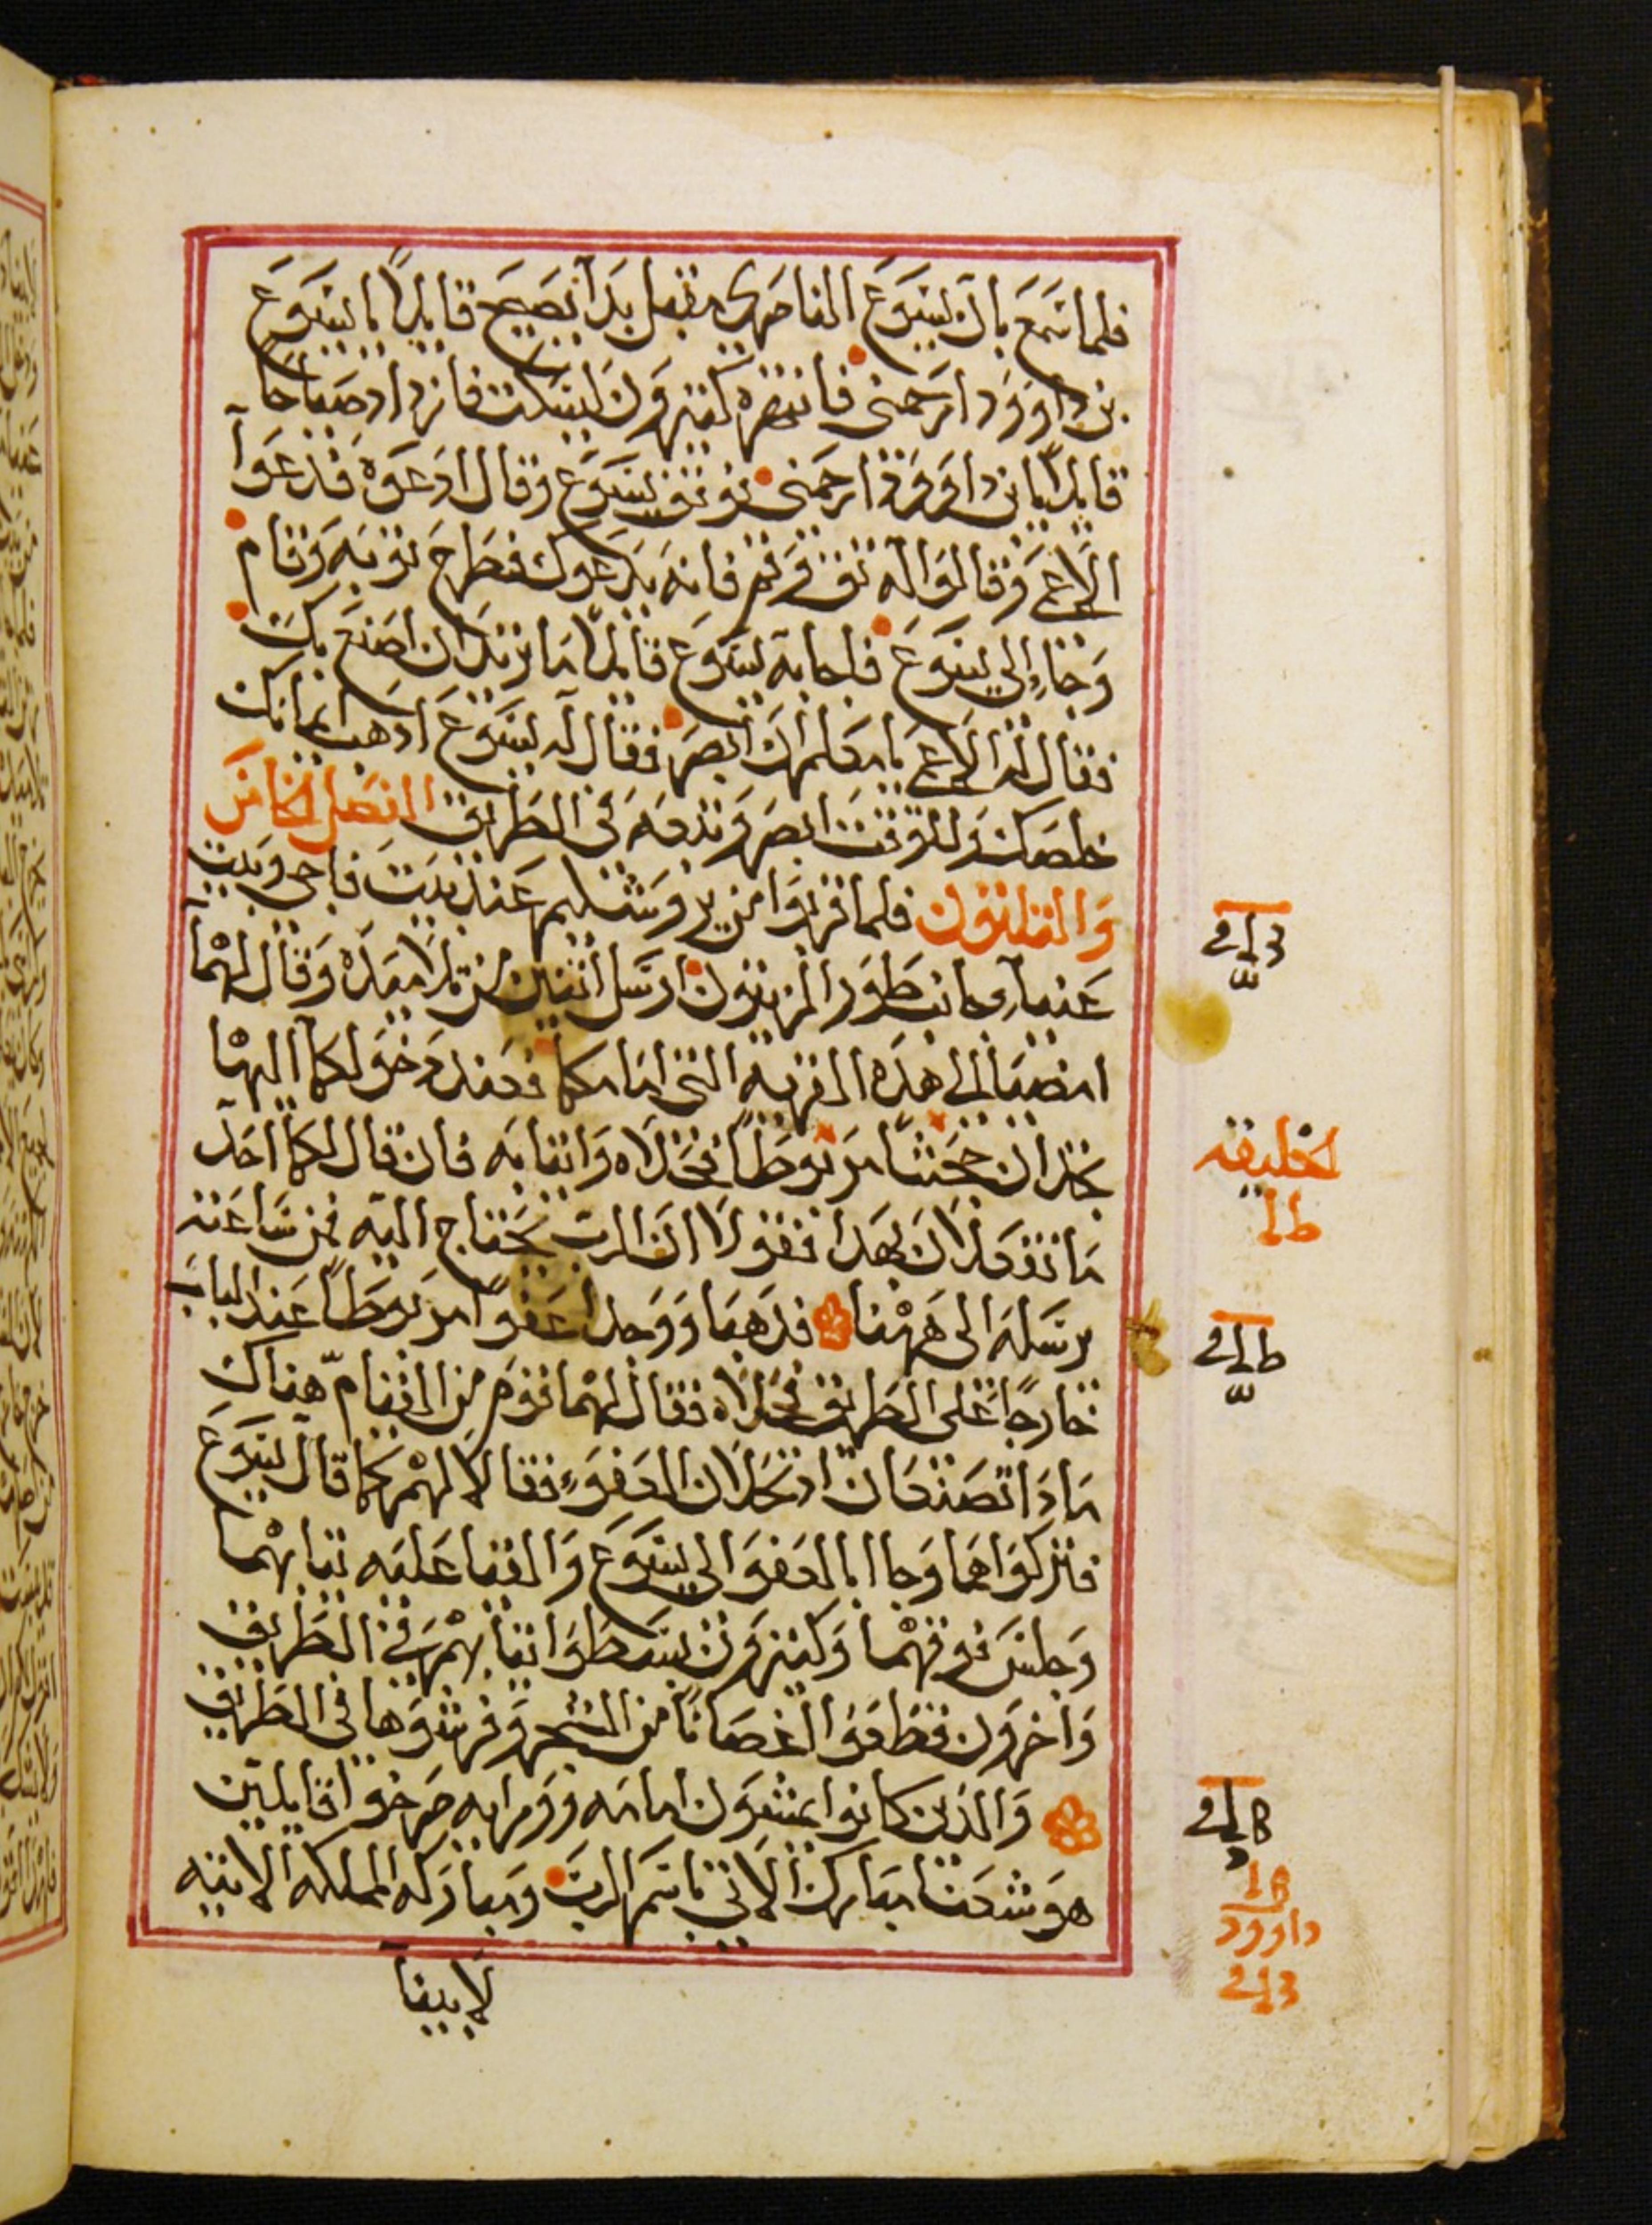 فلما سمع بان يسوع الناصري مقبل بدا يصيح قايلاً يا يسوع
بن داوود ارحمني فانتهره كثيرون ليسكت فازداد صياحاً
قايلاً يا بن داوود ارحمني فوقف يسوع وقال ادعوه فدعوا
الاعمي وقالوا له ثق وقم فانه يدعوك فطرح ثوبه وقام
وجاء إلي يسوع فاجابه يسوع قايلاً ما تريد ان اصنع بك
فقال له الاعمي يا معلم ان ابصر فقال له يسوع اذهب ايمانك
خلصك وللوقت ابصر وتبعه في الطريق الفصل الخامس
والثلثون فلما قربوا من يروشليم عند بيت فاجي وبيت
عنيا جانب طور الزيتون ارسل اثنين من تلاميذه وقال لهما
امضيا إلي هذه القرية التي امامكما فعند دخولكما اليها
تجدان جحشاً مربوطاً فحلاه وايتيا به فان قال لكما احد
ما تفعلان بهذا فقولا ان الرب يحتاج اليه فمن ساعته
يرسله الي ههنا فذهبا ووجدا عفواً مربوطاً عند الباب
خارجاً علي الطريق فحلاه فقال لهما قوم من القيام هناك
ماذا تصنعان اذ تحلان العفو فقالا لهم كما قال يسوع
فتركوا هما وجاا بالعفو الي يسوع والقيا عليه ثيابهما
وجلس فوقهما وكثيرون بسطوا ثيابهم في الطريق
واخرون فقطعوا اغصاناً من الشجر وفرشوها في الطريق
والذين كانوا يمشون امامه وورايه صرخوا قايلين
هوشعنا مبارك الاتي باسم الرب ومباركه المملكه الاتيه
لابينا
لخليفه
داوود